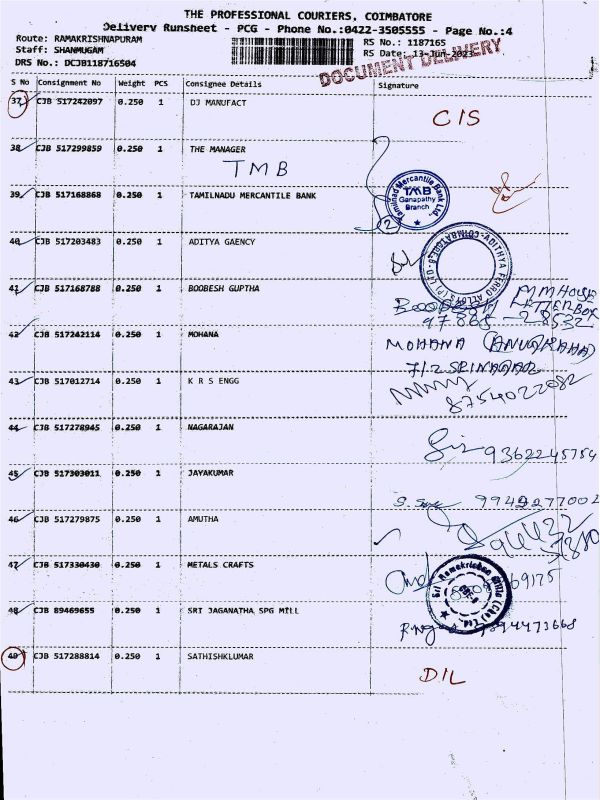 THE PROFESSIONAL COURIERS, COIMBATORE
Delivery Runsheet - PCG - Phone No.:0422-3505555 - Page No.:4
Route: RAMAKRISHNAPURAM RS No.: 1187165
Staff: SHANMUGAM RS Date: 13-Jun-2023
DRS No.: DCJB118716504 DOCUMENT DELIVERY
S No Consignment No Weight PCS Consignee Details Signature
37 CJB 517242097 0.250 1 DJ MANUFACT C/S
38 CJB 517299859 0.250 1 THE MANAGER
TMB
Tamilnad Mercantile Bank Ltd. TMB Ganapathy Branch 2
39 CJB 517168868 0.250 1 TAMILNADU MERCANTILE BANK
40 CJB 517203483 0.250 1 ADITYA GAENCY
ADITHYA FERRO ALLOYS (P) LTD. COIMBATORE
41 CJB 517168788 0.250 1 BOOBESH GUPTHA
MM HOUSE
LETTERBOX
97865 - 28532
42 CJB 517242114 0.250 1 MOHANA MOHANA (ANUGRAHA)
7/2 SRINAGAR
43 CJB 517012714 0.250 1 K R S ENGG
8754022082
44 CJB 517278945 0.250 1 NAGARAJAN
9362245754
45 CJB 517303011 0.250 1 JAYAKUMAR
9942277002
46 CJB 517279875 0.250 1 AMUTHA
47 CJB 517330430 0.250 1 METALS CRAFTS
Sri Ramakrishna Mills (Cbe) Ltd.
48 CJB 89469655 0.250 1 SRI JAGANATHA SPG MILL
49 CJB 517288814 0.250 1 SATHISHKLUMAR D/L